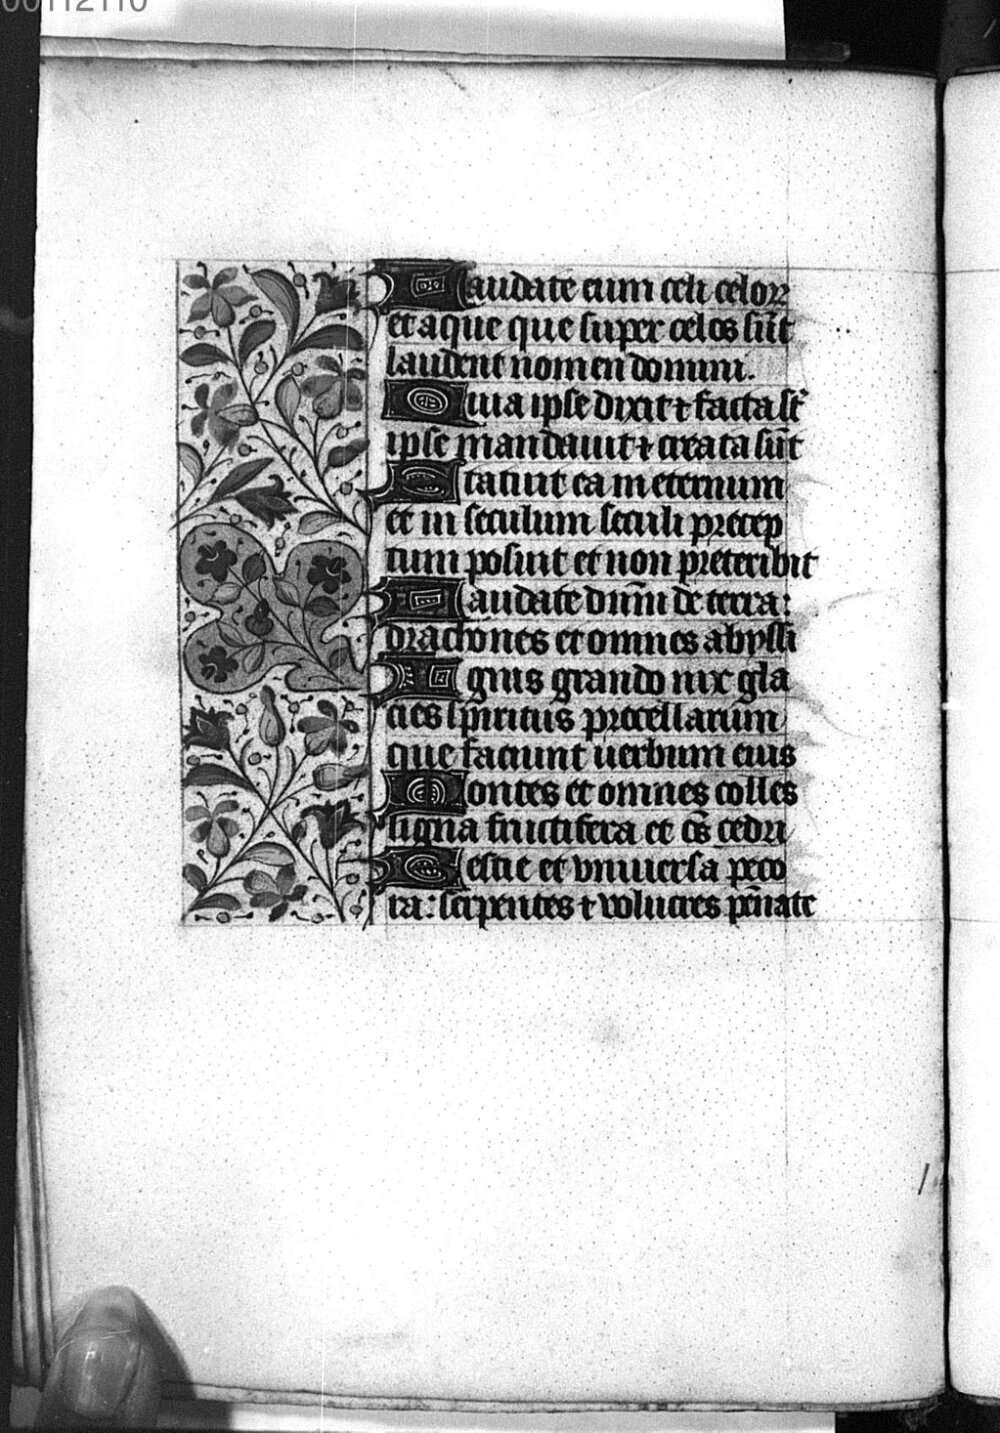 00112110
Laudate eum celi celoꝝ
et aque que super celos sūt
laudent nomen domini.
Quia ipse dixit ⁊ facta sт̄
ipse mandauit ⁊ creata sūt
Statuit ea in eternum
et in seculum seculi precep
tum posuit et non preteribit
Laudate dūm de terra:
drachones et omnes abyssi
Ignis grando nix gla
cies spiritus procellarum
que faciunt uerbum eius
Montes et omnes colles
ligna fructifera et oēs cedri
Bestie et vniuersa peco
ra: serpentes ⁊ volucres pēnate